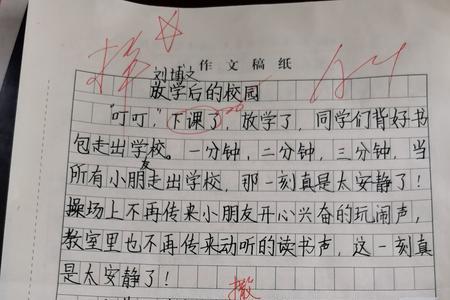 作文稿纸
刘博文
放学后的校园
"叮叮,"下课了,放学了,同学们背好书
包走出学校。一分钟,二分钟,三分钟,当
所有小朋友走出学校,那一刻真是太安静了!
操场上不再传来小朋友开心兴奋的玩闹声,
教室里也不再传来动听的读书声,这一刻真
是太安静了!